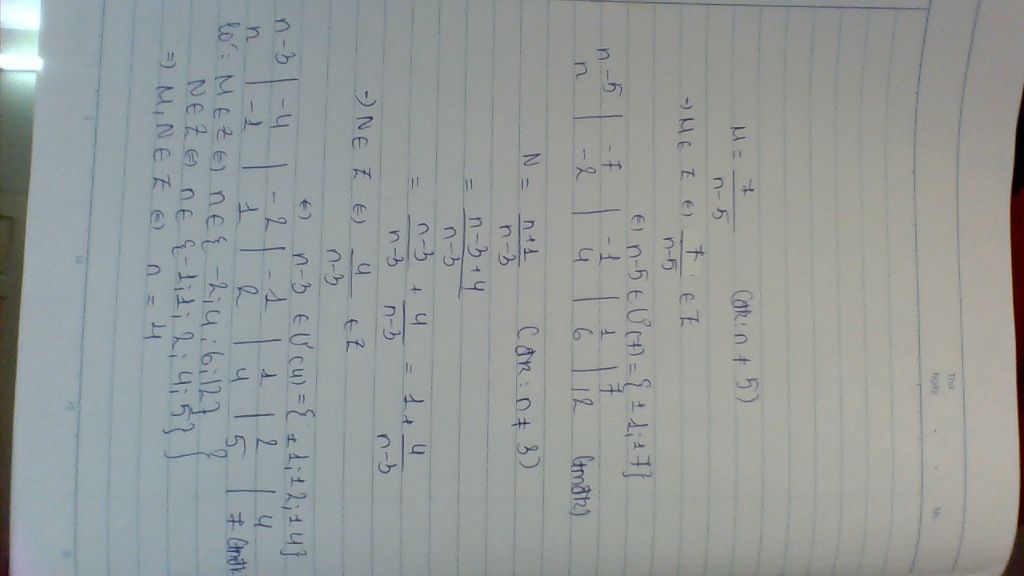 Thứ
Ngày . . No.
M = 7/(n-5) (đk: n ≠ 5)
→ M ∈ Z ⇔ 7/(n-5) ∈ Z
⇔ n-5 ∈ Ư(7) = {±1; ±7}
n-5 | -7 | -1 | 1 | 7
n | -2 | 4 | 6 | 12 (tmđk)
N = (n+1)/(n-3) (đk: n ≠ 3)
= (n-3+4)/(n-3)
= (n-3)/(n-3) + 4/(n-3) = 1 + 4/(n-3)
→ N ∈ Z ⇔ 4/(n-3) ∈ Z
⇔ n-3 ∈ Ư(4) = {±1; ±2; ±4}
n-3 | -4 | -2 | -1 | 1 | 2 | 4
n | -1 | 1 | 2 | 4 | 5 | 7 (tmđk
M ∈ Z ⇔ n ∈ {-2; 4; 6; 12}
N ∈ Z ⇔ n ∈ {-1; 1; 2; 4; 5}
⇒ M, N ∈ Z ⇔ n = 4